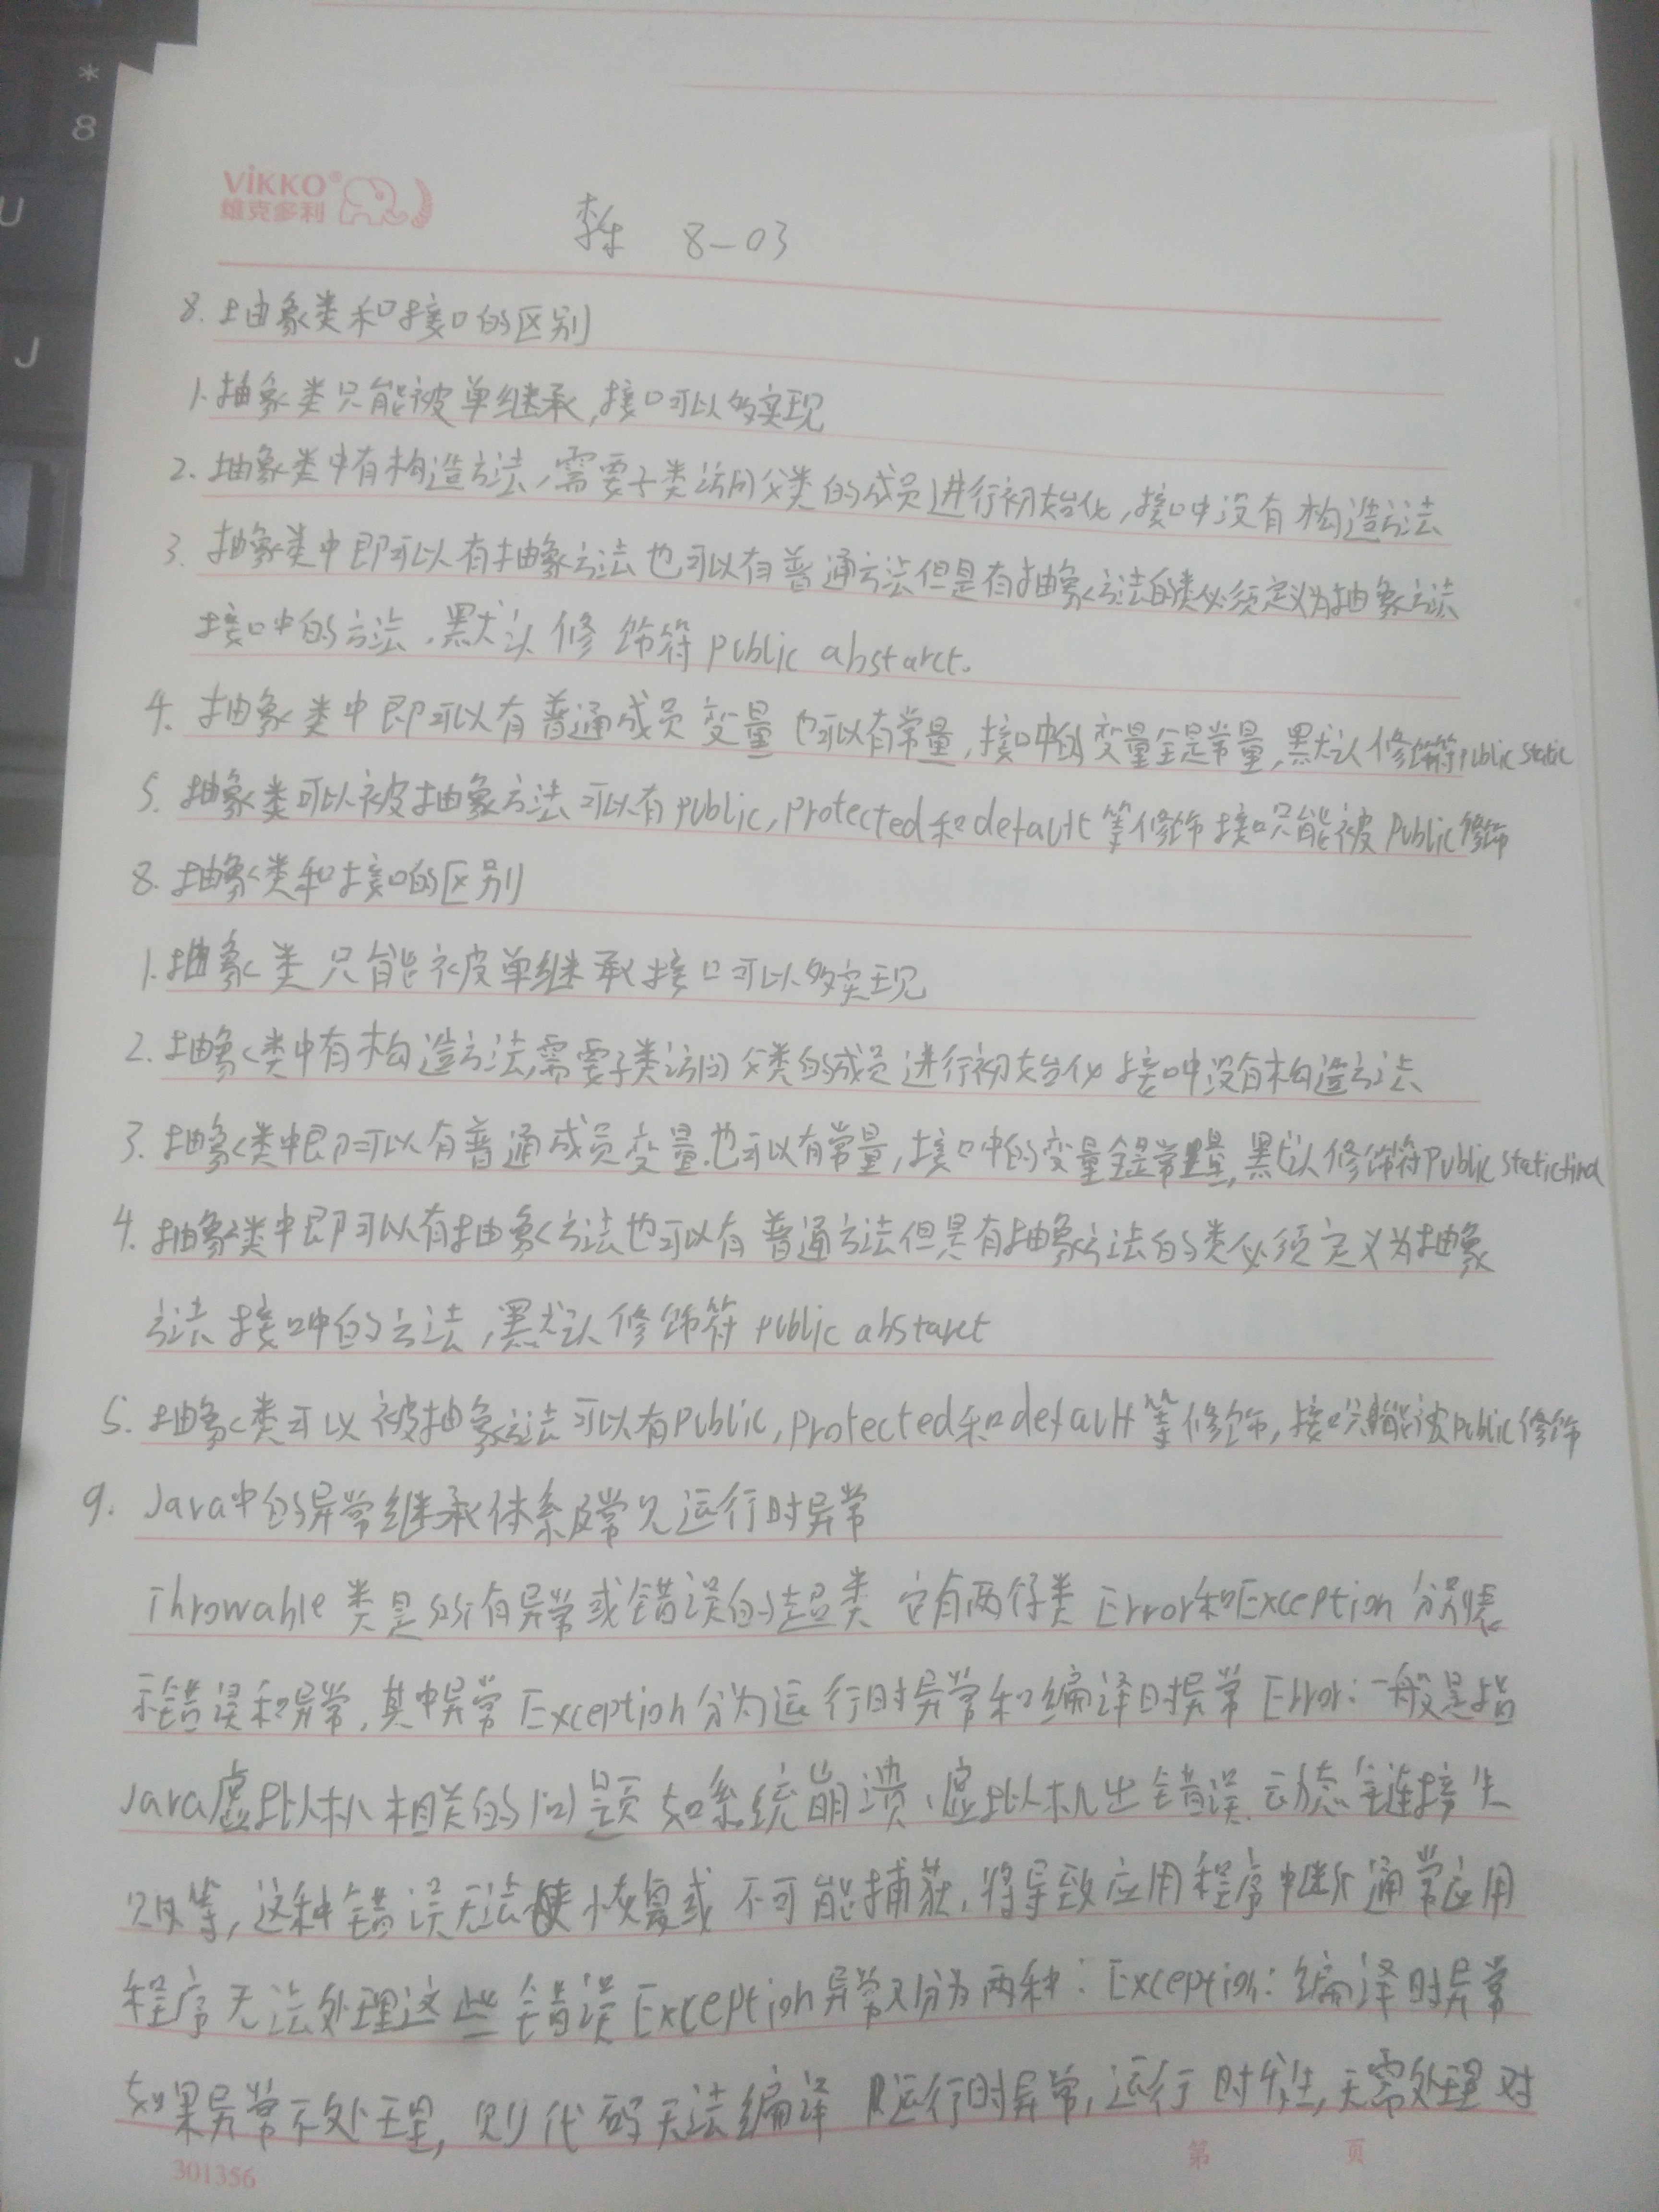 *
8
U
J
ViKKO®
维克多利
8-03
8. 抽象类和接口的区别
1. 抽象类只能被单继承,接口可以多实现
2. 抽象类中有构造方法,需要子类访问父类的成员进行初始化,接口中没有构造方法
3. 抽象类中即可以有抽象方法也可以有普通方法但是有抽象方法的类必须定义为抽象方法
接口中的方法,默认修饰符public abstarct.
4. 抽象类中即可以有普通成员变量也可以有常量,接口中的变量全是常量,默认修饰符public static
5. 抽象类可以被抽象方法可以有public,protected和default等修饰接口只能被public修饰
8. 抽象类和接口的区别
1. 抽象类只能被单继承接口可以多实现
2. 抽象类中有构造方法,需要子类访问父类的成员进行初始化接口中没有构造方法
3. 抽象类中即可以有普通成员变量也可以有常量,接口中的变量全是常量,默认修饰符public static final
4. 抽象类中即可以有抽象方法也可以有普通方法但是有抽象方法的类必须定义为抽象
方法接口中的方法,默认修饰符public abstarct
5. 抽象类可以被抽象方法可以有public,protected和default等修饰,接口只能被public修饰
9. Java中的异常继承体系及常见运行时异常
Throwable类是所有异常或错误的超类它有两仔类Error和Exception分别表
示错误和异常,其中异常Exception分为运行时异常和编译时异常Error:一般是指
Java虚拟机相关的问题如系统崩溃、虚拟机出错误、动态链接失
败等,这种错误无法恢复或不可能捕获,将导致应用程序中断通常应用
程序无法处理这些错误Exception异常又分为两种:Exception:编译时异常
如果异常不处理,则代码无法编译 R运行时异常,运行时发生,无需处理对
301356
第 页